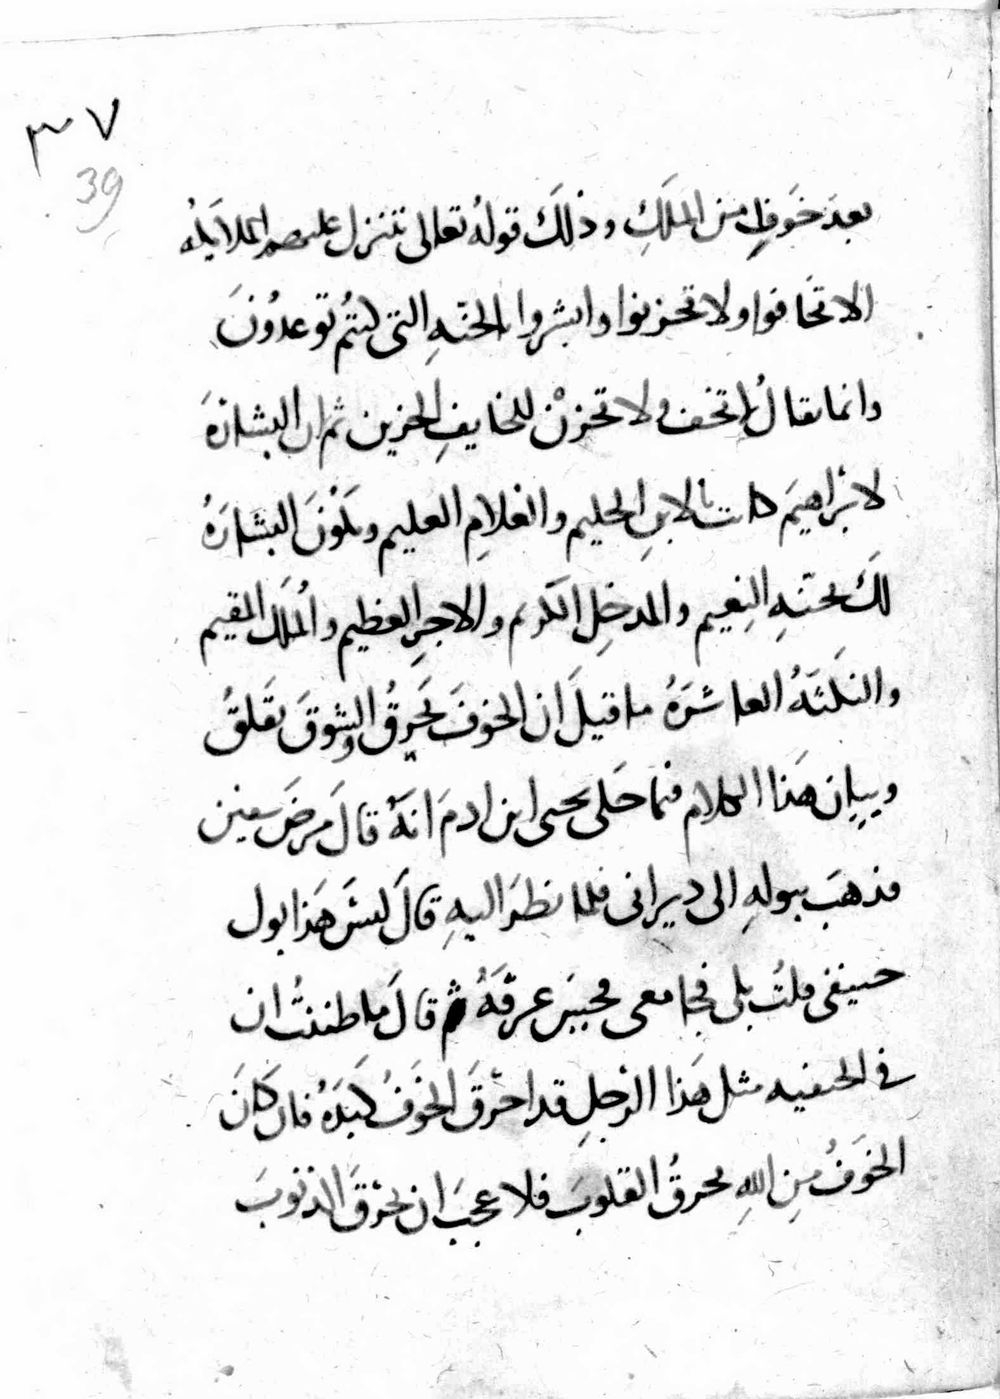 ٣٧
39
بعدَ خَوفٍ من الملَكِ وذلكَ قولهُ تعالى تتنزل عليهم الملايكه
الا تخَافوا ولا تحزنوا وابشروا بالجنّهِ التى كنتُم توعدُونَ
وانما يقالُ لا تخف ولا تحزنْ للخايفِ الحزين ثم ان البشارَةَ
لابْراهيمَ كانت بالابنِ الحليم والغلامِ العليم وتكوُنَ البشارَةُ
لكَ بجنّهِ النِعيم والمدخلِ الكريم والاجرِ العظيم والملك المقيم
والنكتَهُ العاشرَةُ ما قيلَ ان الخوفَ يحَرِقُ والشوقَ يقلقُ
وبيان هَذا الكلام فيما حَكى يحيى ابن ادمَ انهَُ قالَ مرضَ سفين
فذهبَ ببولهِ الى ديرانى فلما نظرَ اليهِ قالَ ليسَ هَذا بول
حنيفى فلتُ بلى فجا معى فجسَ عرقَهُ ثم قالَ ما ظننتُ ان
فى الحنفيه مثل هَذا الرّجلِ قد احَرْقَ الخَوفُ كَبَدَهُ فان كانَ
الخوَفُ مِنِ اللهِ يحرقُ القلوبَ فلا عجبَ ان يحرَقَ الذنوبَ